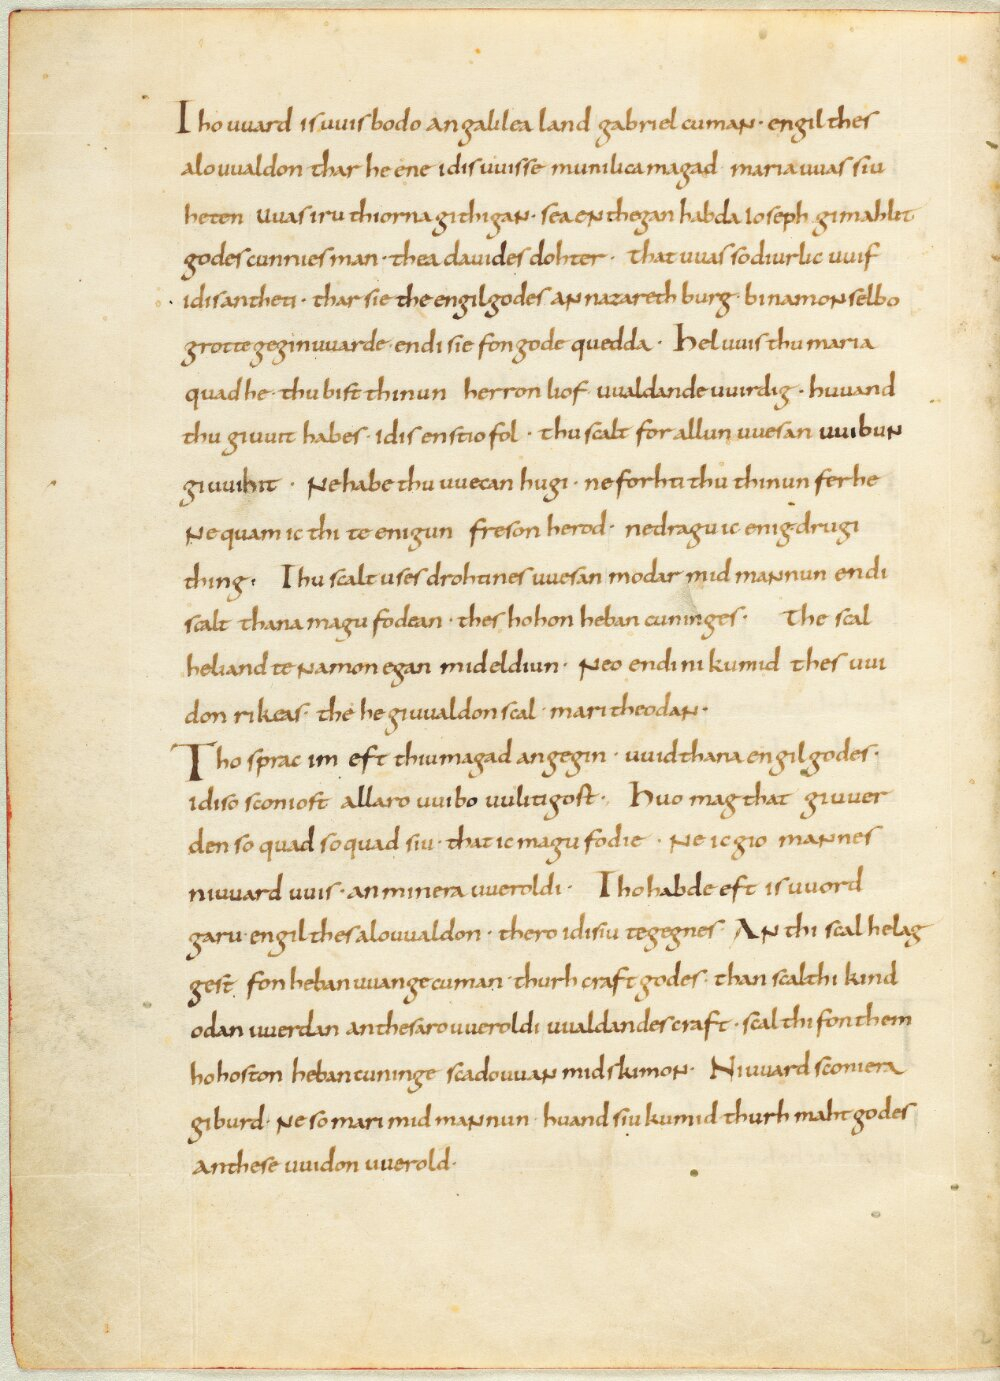 Tho uuard is uuisbodo an galilea land gabriel cuman · engil thes
alouualdon thar he ene idis uuisse munilica magad maria uuas siu
heten uuas iru thiorna githigan · sea en thegan habda Ioseph gimahlit
godes cunnies man · thea dauides dohter · that uuas so diurlic uuif
idis antheti · thar sie the engil godes an nazareth burg binamon selbo
grotte geginuuarde endi sie fon gode quedda · Hel uuis thu maria
quad he · thu bist thinun herron liof uualdande uuirdig · huuand
thu giuuit habes · idis enstio fol · thu scalt for allun uuesan uuibun
giuuihit · Ne habe thu uuecan hugi · ne forhti thu thinun ferhe
Ne quam ic thi te enigun freson herod · ne dragu ic enig drugi
thing · Thu scalt uses drohtines uuesan modar mid mannun endi
scalt thana magu fodean · thes hohon heban cuninges · The scal
heliand te namon egan mid eldiun · Neo endi ni kumid thes uui
don rikeas · the he giuualdon scal · mari theodan ·
Tho sprac im eft thiu magad angegin · uuid thana engil godes ·
idiso sconiost allaro uuibo uulitigost · Huo mag that giuuer
den so quad so quad siu · that ic magu fodie · Ne ic gio mannes
niuuard uuis · an minera uueroldi · Tho habde eft is uuord
garu engil thes alouualdon · thero idisiu tegegnes · An thi scal helag
gest fon hebanuuange cuman thurh craft godes · than scal thi kind
odan uuerdan an thesaro uueroldi uualdandes craft · scal thi fon them
hohoston hebancuninge scadouuan mid skimon · Ni uuard sconiera
giburd · ne so mari mid mannun huand siu kumid thurh maht godes
an these uuidon uuerold ·